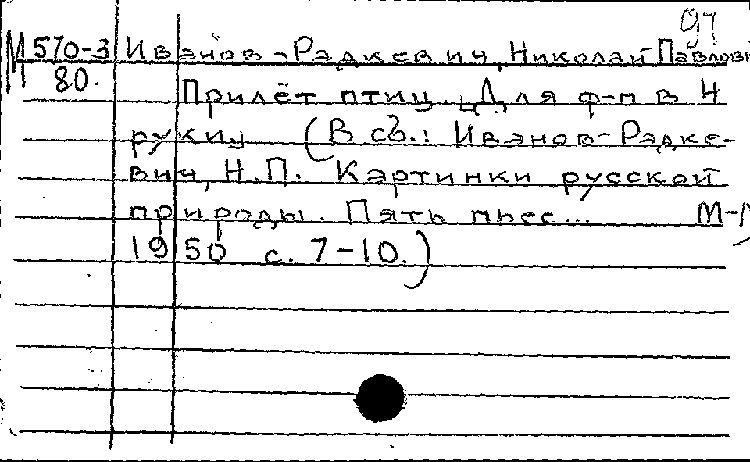 97
М 570-3 Иванов-Радкевич, Николай Павлови
80.
Прилёт птиц. Для ф-п в 4
руки,
(В сб.: Иванов-Радке-
вич, Н.П. Картинки русской
природы. Пять пьес... М-
1950 с. 7-10.)